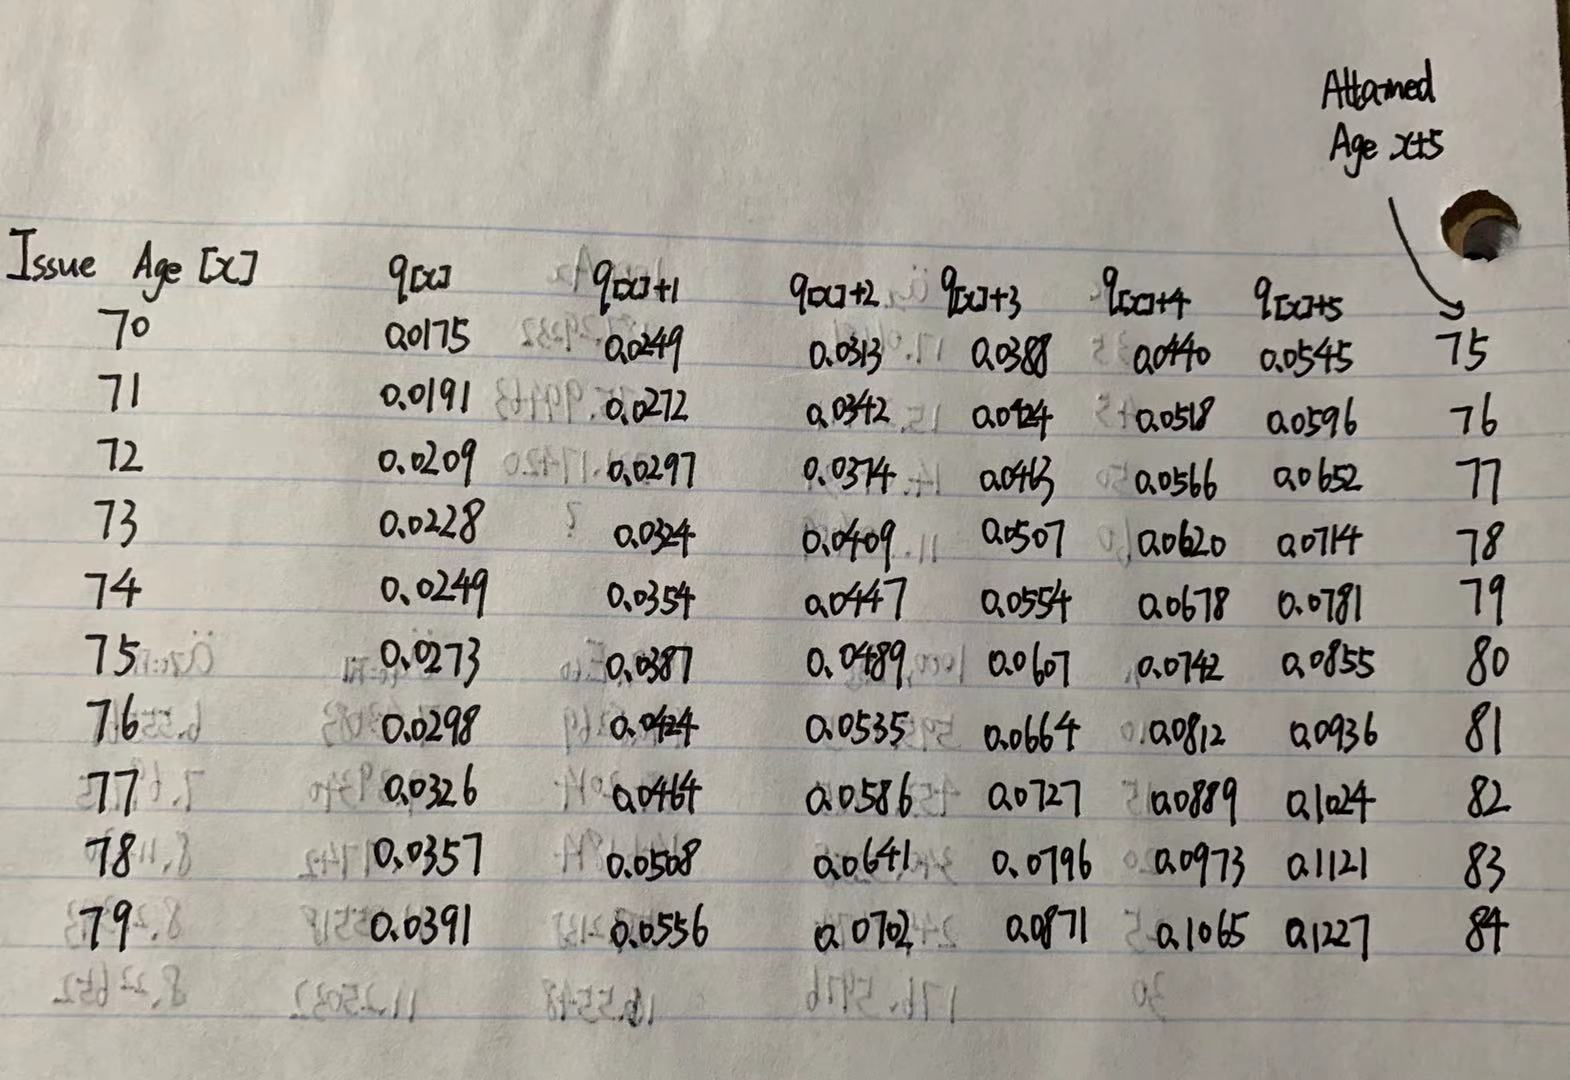 Attained
Age x+5
Issue Age [x] q[x] q[x]+1 q[x]+2 q[x]+3 q[x]+4 q[x]+5
70 0.0175 0.0249 0.0313 0.0388 0.0440 0.0545 75
71 0.0191 0.0272 0.0342 0.0424 0.0518 0.0596 76
72 0.0209 0.0297 0.0374 0.0463 0.0566 0.0652 77
73 0.0228 0.0324 0.0409 0.0507 0.0620 0.0714 78
74 0.0249 0.0354 0.0447 0.0554 0.0678 0.0781 79
75 0.0273 0.0387 0.0489 0.0607 0.0742 0.0855 80
76 0.0298 0.0424 0.0535 0.0664 0.0812 0.0936 81
77 0.0326 0.0464 0.0586 0.0727 0.0889 0.1024 82
78 0.0357 0.0508 0.0641 0.0796 0.0973 0.1121 83
79 0.0391 0.0556 0.0702 0.0871 0.1065 0.1227 84